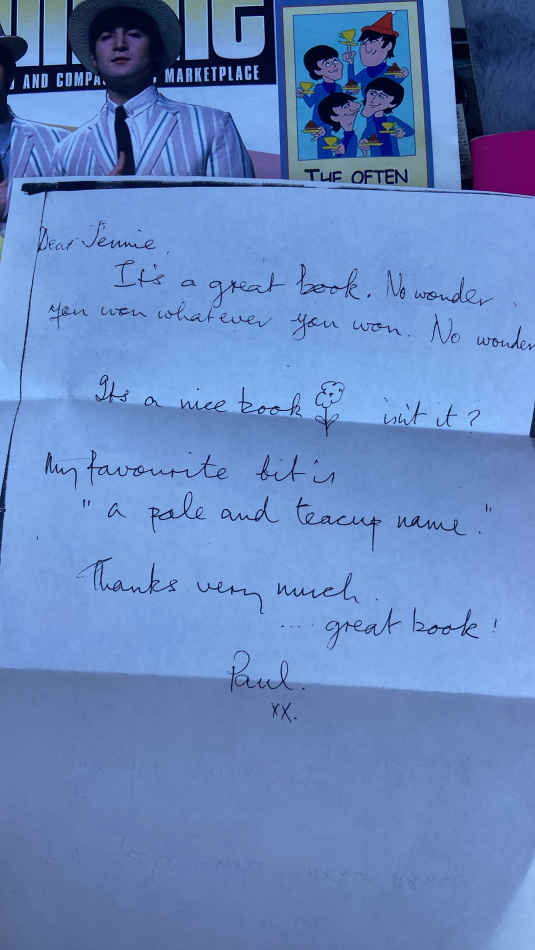 AND COMPA MARKETPLACE
THE OFTEN
Dear Jennie,
It's a great book. No wonder
you won whatever you won. No wonder
Its a nice book isn't it?
My favourite bit is
" a pale and teacup name."
Thanks very much.
.... great book!
Paul.
xx.